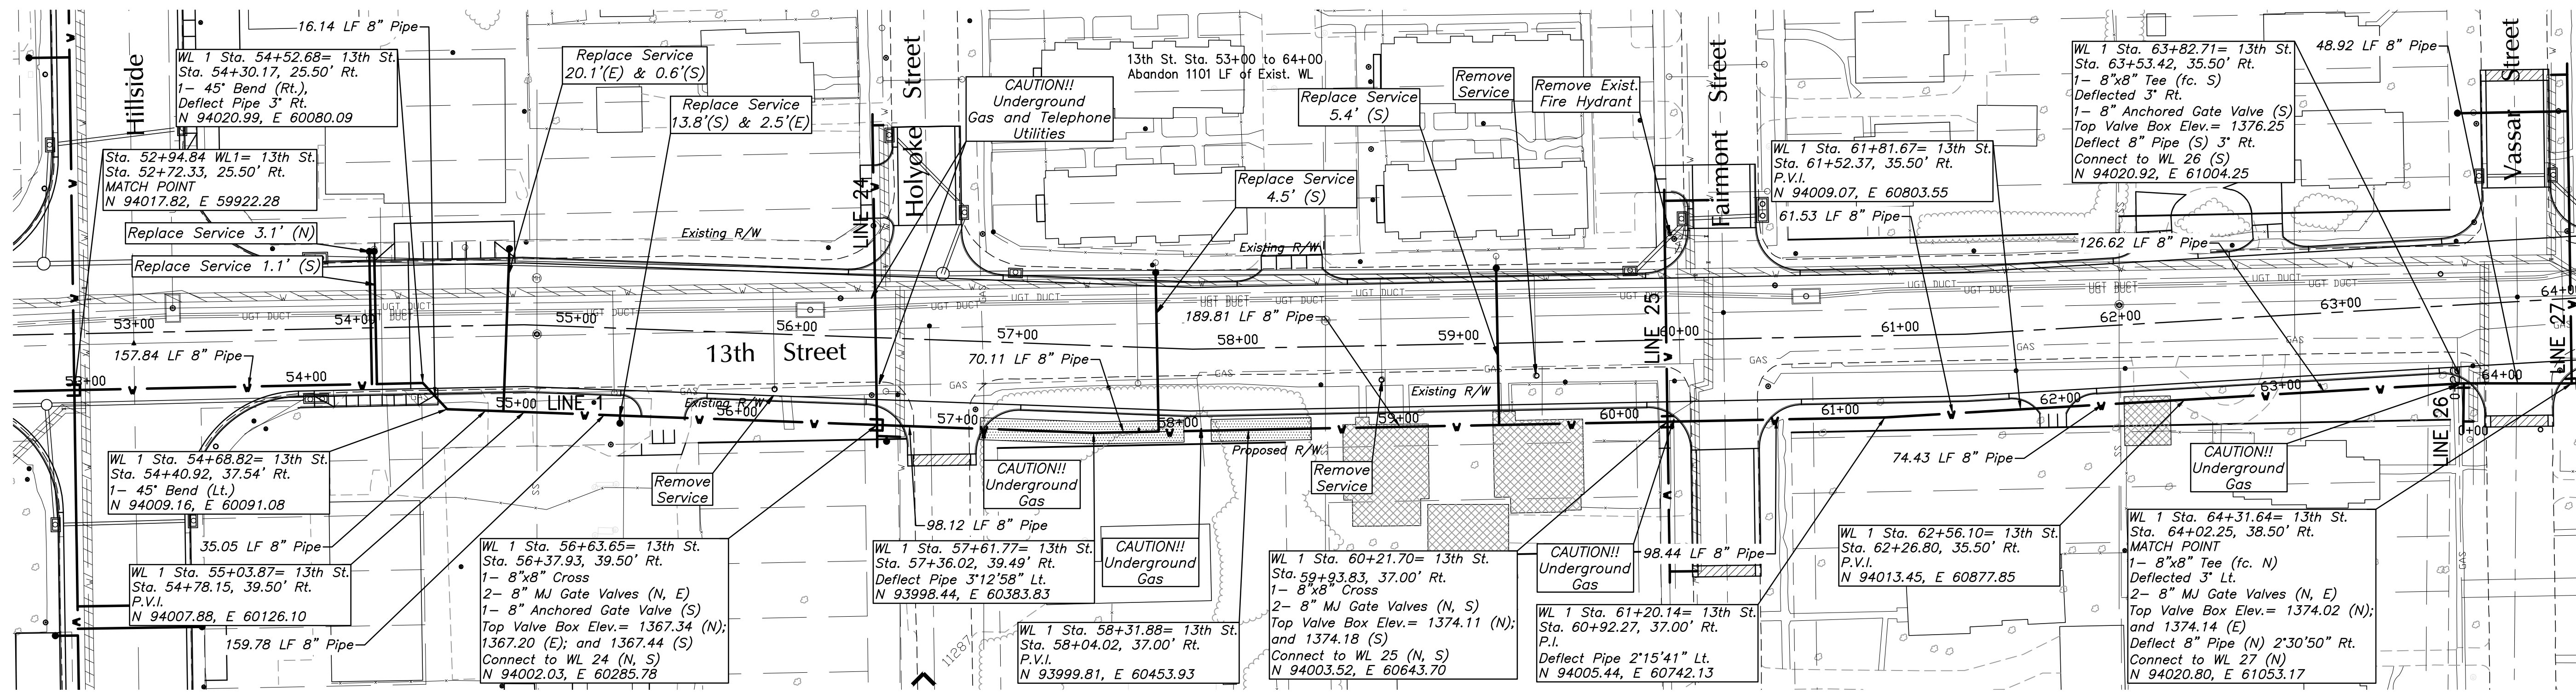 16.14 LF 8" Pipe
Hillside
WL 1 Sta. 54+52.68= 13th St.
Sta. 54+30.17, 25.50' Rt.
1- 45° Bend (Rt.),
Deflect Pipe 3° Rt.
N 94020.99, E 60080.09
Sta. 52+94.84 WL1= 13th St.
Sta. 52+72.33, 25.50' Rt.
MATCH POINT
N 94017.82, E 59922.28
Replace Service 3.1' (N)
Replace Service 1.1' (S)
Replace Service
20.1'(E) & 0.6'(S)
Replace Service
13.8'(S) & 2.5'(E)
Existing R/W
LINE 24
Holyoke Street
CAUTION!!
Underground
Gas and Telephone
Utilities
13th St. Sta. 53+00 to 64+00
Abandon 1101 LF of Exist. WL
Replace Service
4.5' (S)
Existing R/W
Replace Service
5.4' (S)
Remove
Service
Remove Exist.
Fire Hydrant
Farmont Street
WL 1 Sta. 61+81.67= 13th St.
Sta. 61+52.37, 35.50' Rt.
P.V.I.
N 94009.07, E 60803.55
61.53 LF 8" Pipe
WL 1 Sta. 63+82.71= 13th St.
Sta. 63+53.42, 35.50' Rt.
1- 8"x8" Tee (fc. S)
Deflected 3° Rt.
1- 8" Anchored Gate Valve (S)
Top Valve Box Elev.= 1376.25
Deflect 8" Pipe (S) 3° Rt.
Connect to WL 26 (S)
N 94020.92, E 61004.25
126.62 LF 8" Pipe
48.92 LF 8" Pipe
Vassar Street
UGT DUCT
UGT DUCT
UGT DUCT
UGT DUCT
UGT DUCT
UGT DUCT
UGT DUCT
UGT DUCT
UGT DUCT
UGT DUCT
UGT DUCT
UGT DUCT
UGT DUCT
53+00
54+00
55+00
56+00
57+00
58+00
59+00
60+00
61+00
62+00
63+00
64+00
157.84 LF 8" Pipe
13th Street
189.81 LF 8" Pipe
70.11 LF 8" Pipe
LINE 25
LINE 27
GAS
GAS
GAS
GAS
GAS
GAS
GAS
53+00
54+00
55+00
LINE 1
Existing R/W
56+00
57+00
58+00
Existing R/W
59+00
60+00
61+00
62+00
63+00
64+00
0+00
LINE 26
Proposed R/W
WL 1 Sta. 54+68.82= 13th St.
Sta. 54+40.92, 37.54' Rt.
1- 45° Bend (Lt.)
N 94009.16, E 60091.08
35.05 LF 8" Pipe
WL 1 Sta. 55+03.87= 13th St.
Sta. 54+78.15, 39.50' Rt.
P.V.I.
N 94007.88, E 60126.10
159.78 LF 8" Pipe
Remove
Service
WL 1 Sta. 56+63.65= 13th St.
Sta. 56+37.93, 39.50' Rt.
1- 8"x8" Cross
2- 8" MJ Gate Valves (N, E)
1- 8" Anchored Gate Valve (S)
Top Valve Box Elev.= 1367.34 (N);
1367.20 (E); and 1367.44 (S)
Connect to WL 24 (N, S)
N 94002.03, E 60285.78
98.12 LF 8" Pipe
CAUTION!!
Underground
Gas
WL 1 Sta. 57+61.77= 13th St.
Sta. 57+36.02, 39.49' Rt.
Deflect Pipe 3°12'58" Lt.
N 93998.44, E 60383.83
11287
CAUTION!!
Underground
Gas
WL 1 Sta. 58+31.88= 13th St.
Sta. 58+04.02, 37.00' Rt.
P.V.I.
N 93999.81, E 60453.93
Remove
Service
WL 1 Sta. 60+21.70= 13th St.
Sta. 59+93.83, 37.00' Rt.
1- 8"x8" Cross
2- 8" MJ Gate Valves (N, S)
Top Valve Box Elev.= 1374.11 (N);
and 1374.18 (S)
Connect to WL 25 (N, S)
N 94003.52, E 60643.70
CAUTION!!
Underground
Gas
98.44 LF 8" Pipe
WL 1 Sta. 61+20.14= 13th St.
Sta. 60+92.27, 37.00' Rt.
P.I.
Deflect Pipe 2°15'41" Lt.
N 94005.44, E 60742.13
74.43 LF 8" Pipe
WL 1 Sta. 62+56.10= 13th St.
Sta. 62+26.80, 35.50' Rt.
P.V.I.
N 94013.45, E 60877.85
CAUTION!!
Underground
Gas
WL 1 Sta. 64+31.64= 13th St.
Sta. 64+02.25, 38.50' Rt.
MATCH POINT
1- 8"x8" Tee (fc. N)
Deflected 3° Lt.
2- 8" MJ Gate Valves (N, E)
Top Valve Box Elev.= 1374.02 (N);
and 1374.14 (E)
Deflect 8" Pipe (N) 2°30'50" Rt.
Connect to WL 27 (N)
N 94020.80, E 61053.17